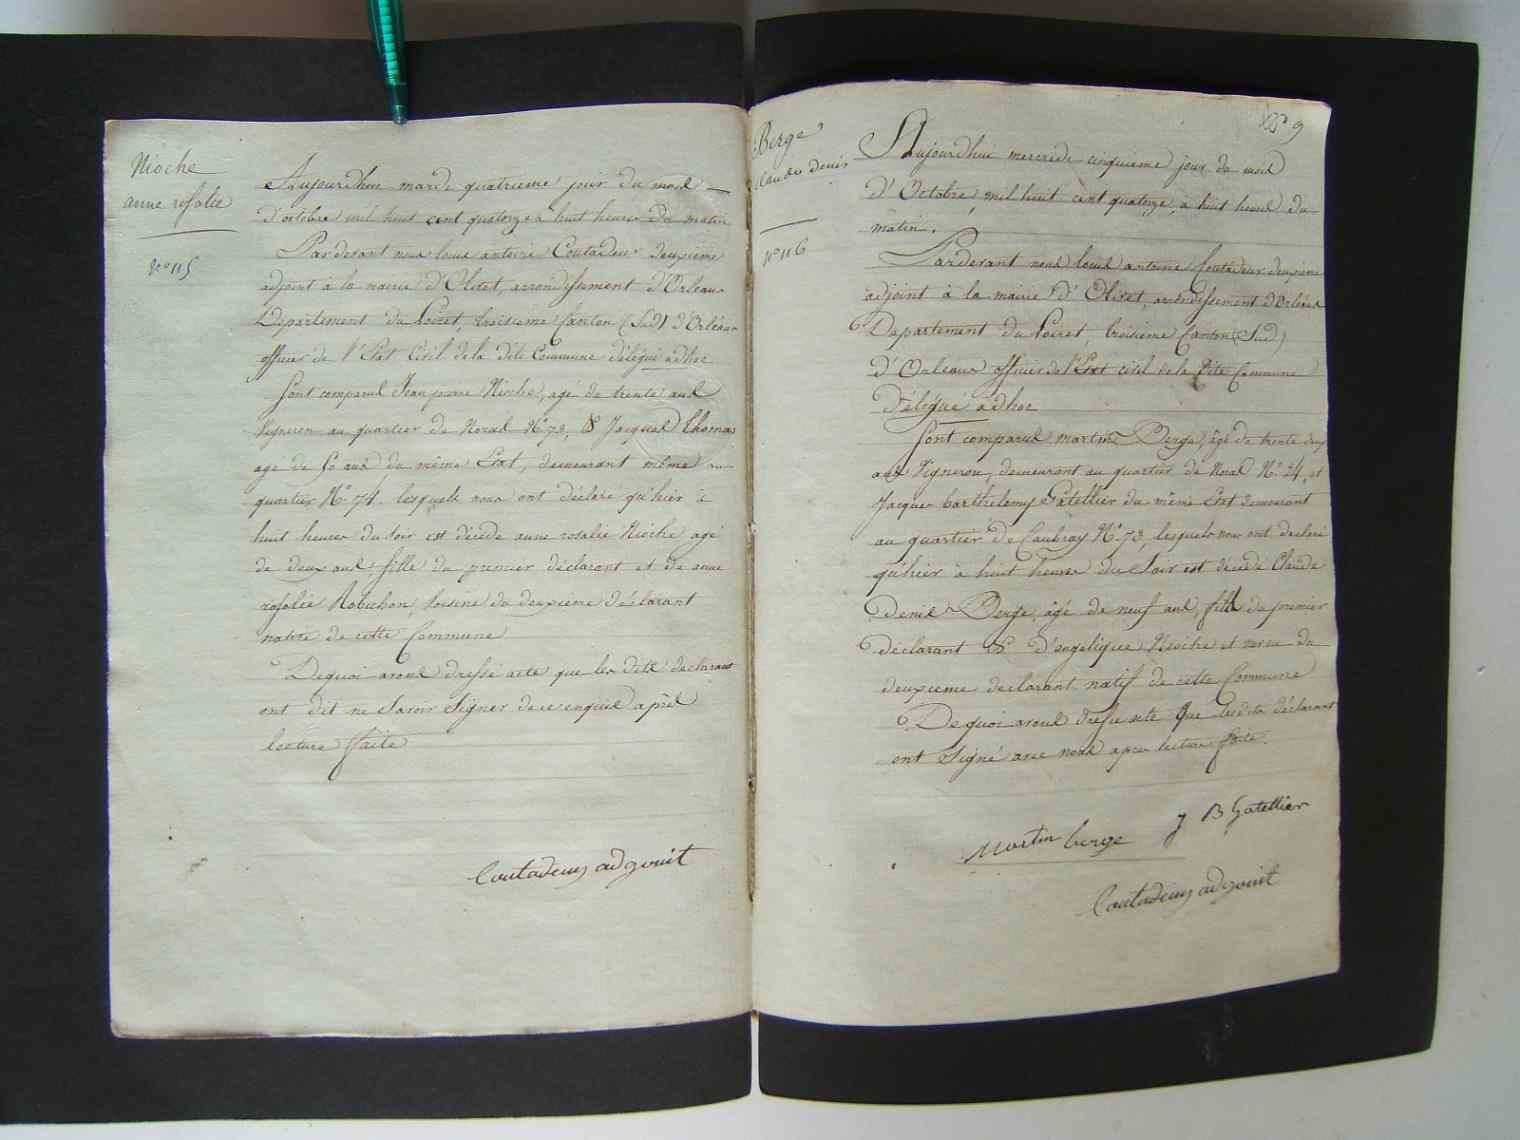 Nioche
anne rosalie
N° 115
Aujourdhui mardi quatrieme jour du mois
d'octobre mil huit cent quatorze à huit heures du matin
Pardevant nous louis antoine Coutadeur deuxieme
adjoint à la mairie d'Olivet, arrondissement d'Orleans
Departement du Loiret, troisieme Canton (Sud) d'Orléans
officier de l'Etat Civil de la dite Commune délégué adhoc
Sont comparus Jean pierre Nioche, agé de trente ans
Vigneron au quartier de Noras N° 73, & Jacques Thomas
agé de 50 ans du même Etat, demeurant même
quartier N° 74 lesquels nous ont déclaré qu'hier à
huit heures du soir est décédé anne rosalie Nioche agé
de deux ans, fille du premier déclarant et de anne
rosalie Robichon, voisine du deuxieme déclarant
native de cette Commune
Dequoi avons dressé acte que les dits déclarants
ont dit ne savoir signer de ce enquis après
lecture faite
Coutadeur adjouit
9
Berge
Claude denis
N° 116
Aujourdhui mercredi cinquieme jour du mois
d'Octobre mil huit cent quatorze, à huit heures du
matin.
Pardevant nous louis antoine Coutadeur deuxieme
adjoint à la mairie d'Olivet, arrondissement d'Orléans
Departement du Loiret, troisieme Canton (Sud)
d'Orleans officier de l'Etat civil de la dite Commune
Délégué adhoc
Sont comparus martin Berge, âgé de trente deux
ans Vigneron, demeurant au quartier de Noras N° 24, et
Jacques barthelemy Gatellier du même Etat demeurant
au quartier de Caubray N° 73, lesquels nous ont declaré
qu'hier à huit heures du Soir est décédé Claude
Denis Berge, âgé de neuf ans, fils du premier
déclarant & d'angelique Nioche et neveu du
deuxieme declarant natif de cette Commune
Dequoi avons dressé acte que lesdits déclarants
ont signé avec nous apres lecture faite.
Martin berge J B Gatellier
Coutadeur adjouit